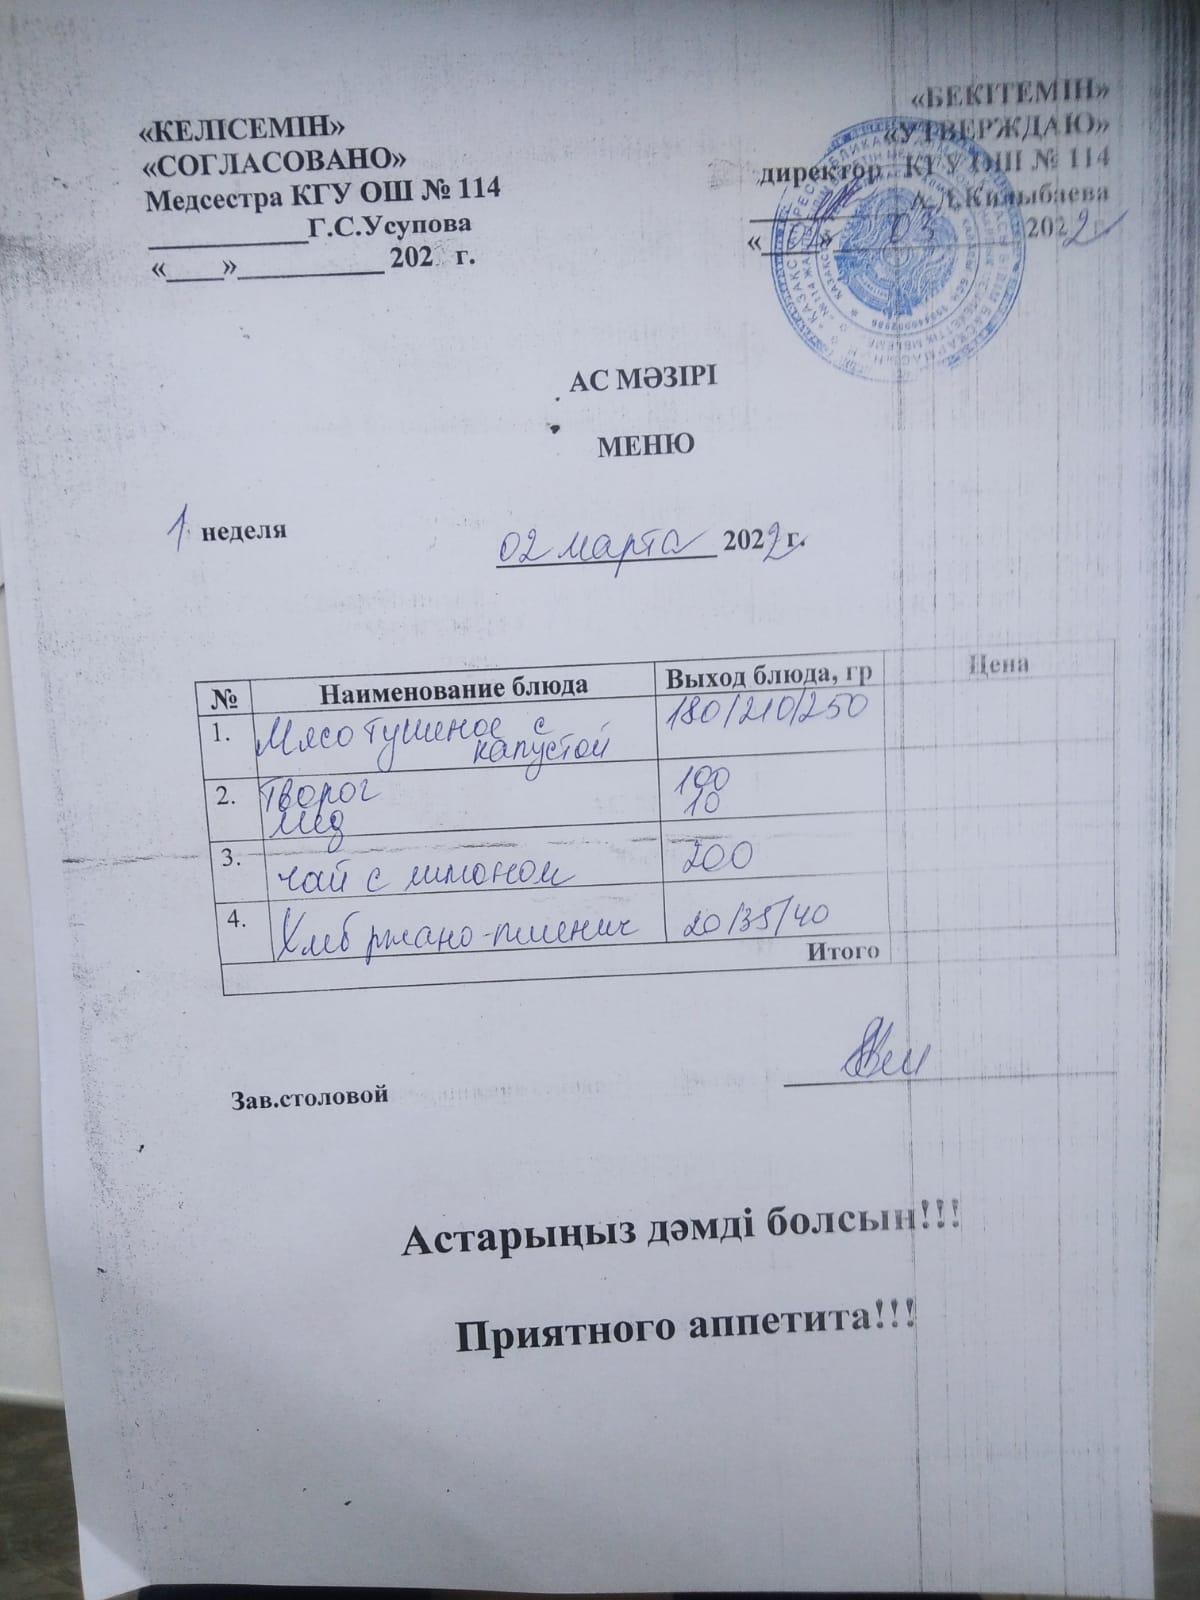 «КЕЛІСЕМІН»
«СОГЛАСОВАНО»
Медсестра КГУ ОШ № 114
___________Г.С.Усупова
«____»__________ 202 г.
«БЕКІТЕМІН»
«УТВЕРЖДАЮ»
директор КГУ ОШ № 114
« » 03 2022 г.
АС МӘЗІРІ
МЕНЮ
1 неделя
02 марта 2022 г.
№ Наименование блюда Выход блюда, гр Цена
1. Мясо тушеное с капустой 180/210/250
2. Творог 100
мед 10
3. чай с лимоном 200
4. Хлеб ржано-пшенич 20/35/40
Итого
Зав.столовой
Астарыңыз дәмді болсын!!!
Приятного аппетита!!!